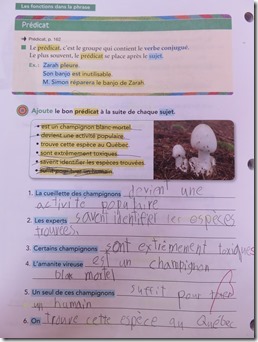 Les fonctions dans la phrase
Prédicat
Prédicat, p. 162
Le prédicat, c'est le groupe qui contient le verbe conjugué.
Le plus souvent, le prédicat se place après le sujet.
Ex. : Zarah pleure.
Son banjo est inutilisable.
M. Simon réparera le banjo de Zarah.
Ajoute le bon prédicat à la suite de chaque sujet.
est un champignon blanc mortel.
devient une activité populaire.
trouve cette espèce au Québec.
sont extrêmement toxiques.
savent identifier les espèces trouvées.
suffit pour tuer un humain.
1. La cueillette des champignons devient une
activité populaire
2. Les experts savent identifier les espèces
trouvées.
3. Certains champignons sont extrêmement toxiques
4. L'amanite vireuse est un champignon
blanc mortel
5. Un seul de ces champignons suffit pour tuer
un humain
6. On trouve cette espèce au Québec